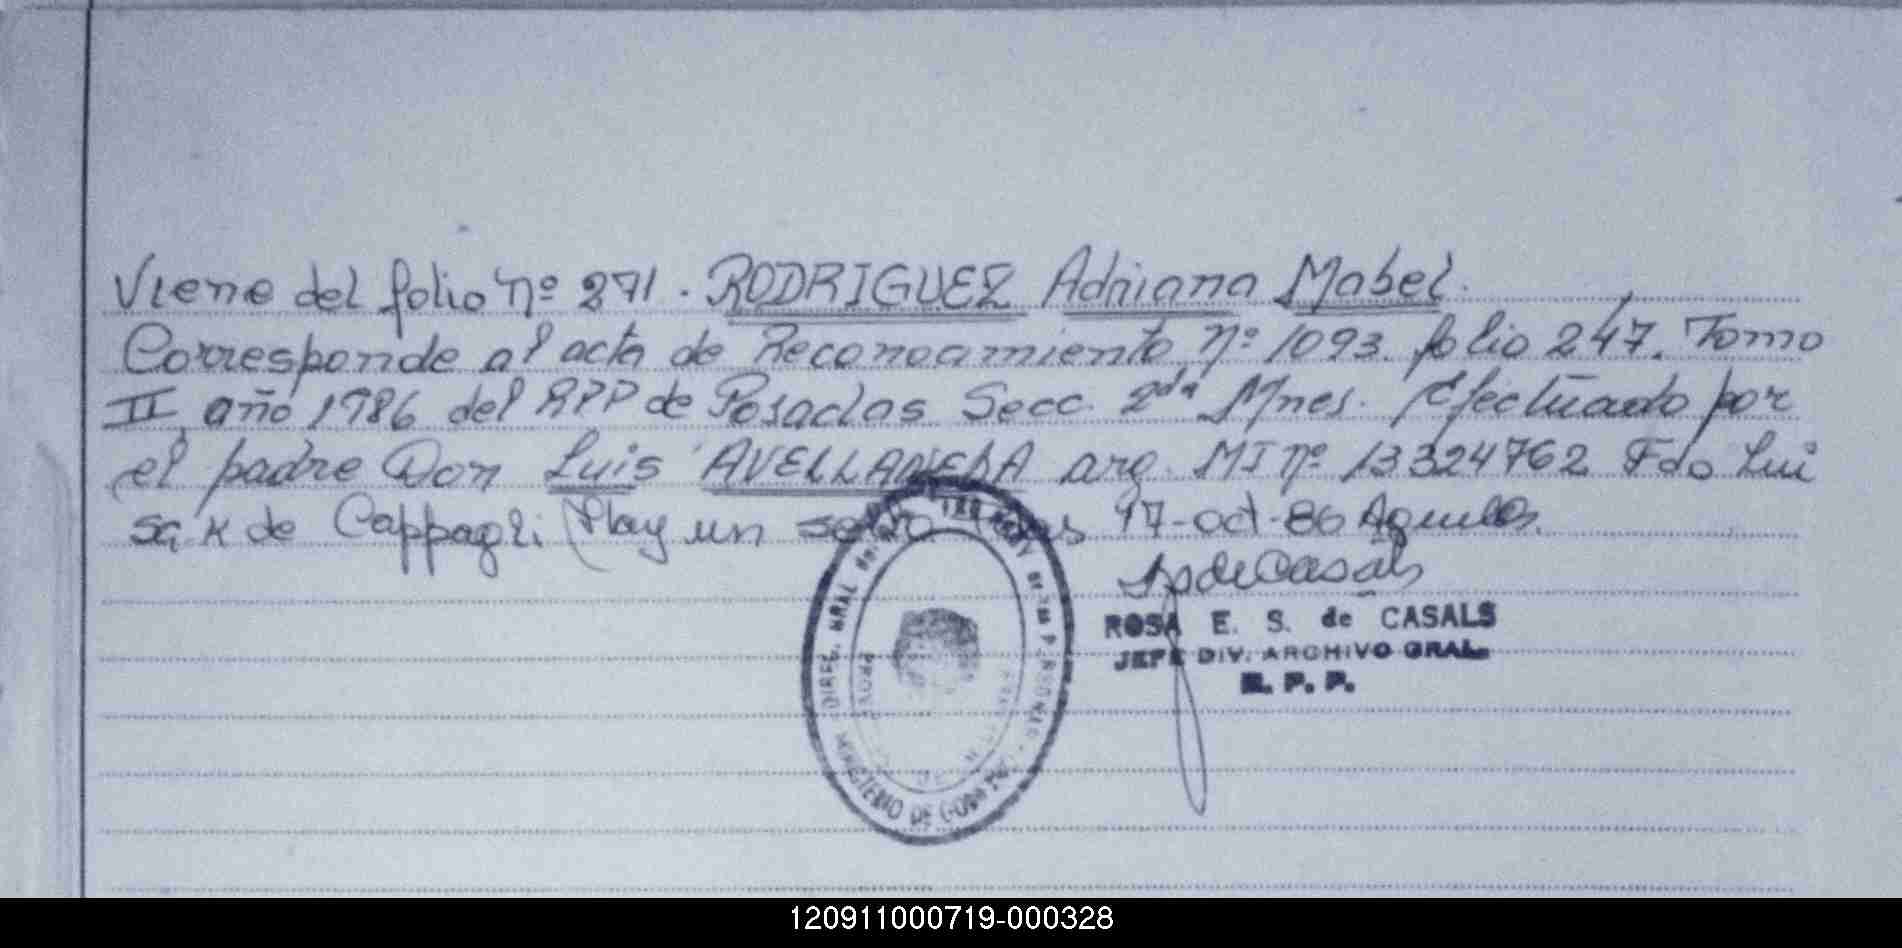 Viene del folio nº 271. RODRIGUEZ Adriana Mabel.
Corresponde al acta de Reconocimiento nº 1093. folio 247. Tomo
II año 1986 del RPP de Posadas Secc. 2da Mnes. Efectuado por
el padre Don Luis AVELLANEDA arg. MI nº 13324762 Fdo Lui
sa K de Cappagli (Hay un sello) Pdas 17-oct-86
ROSA E. S. de CASALS
JEFE DIV. ARCHIVO GRAL.
R. P. P.
DIREC. GRAL DE LAS PERSONAS
MINISTERIO DE GOBIERNO
120911000719-000328